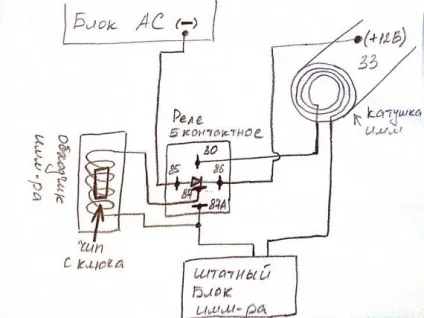 Блок АС (-)
(+12В)
33
катушка
имм
Реле
5 контактное
30
85
86
87
87А
обходчик
имм-ра
чип
с ключа
штатный
Блок
имм-ра